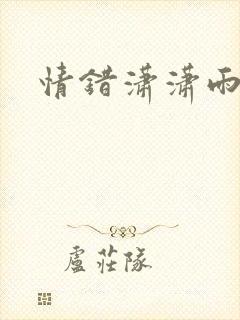 情錯瀟瀟雨
盧莊隊